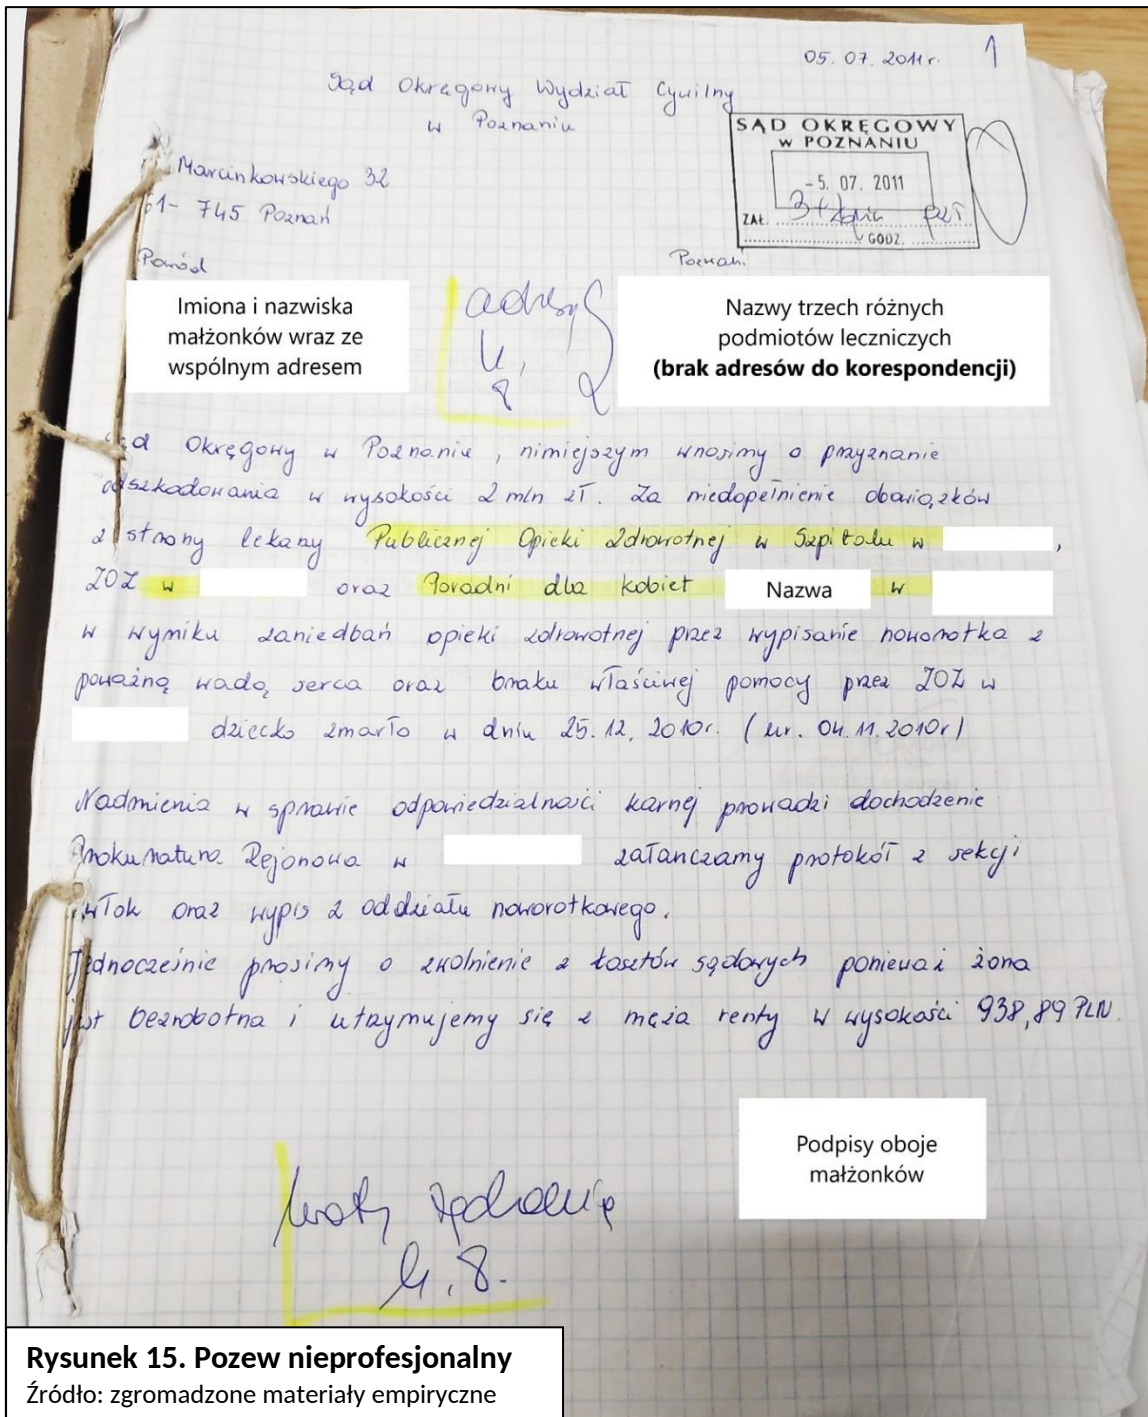 05. 07. 2011r. 1
Sąd Okręgowy Wydział Cywilny
w Poznaniu
SĄD OKRĘGOWY
w POZNANIU
-5. 07. 2011
ZAŁ.
GODZ.
Marcinkowskiego 32
61-745 Poznań
Powód
Pozwani
Imiona i nazwiska
małżonków wraz ze
wspólnym adresem
adresy
k. 8
Nazwy trzech różnych
podmiotów leczniczych
(brak adresów do korespondencji)
Sąd Okręgowy w Poznaniu, nimiejszym wnosimy o przyznanie
odszkodowania w wysokości 2 mln zł. Za niedopełnienie obowiązków
z strony lekarzy Publicznej Opieki Zdrowotnej w Szpitalu w ,
ZOZ w oraz Poradni dla kobiet Nazwa w
w wyniku zaniedbań opieki zdrowotnej przez wypisanie noworotka z
poważną wadą serca oraz braku właściwej pomocy przez ZOZ w
dziecko zmarło w dniu 25.12.2010r. (ur. 04.11.2010r)
Nadmienia w sprawie odpowiedzialności karnej prowadzi dochodzenie
Prokuratura Rejonowa w załanczamy protokół z sekcji
zwłok oraz wypis z oddziału noworotkowego.
Jednocześnie prosimy o zwolnienie z kosztów sądowych ponieważ żona
jest bezrobotna i utrzymujemy się z męża renty w wysokości 938,89 PLN.
Podpisy oboje
małżonków
k. 8.
Rysunek 15. Pozew nieprofesjonalny
Źródło: zgromadzone materiały empiryczne